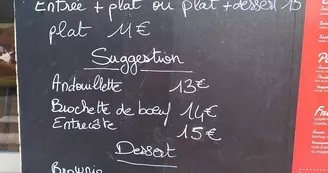 Entrée + plat ou plat + dessert 15
plat 11€
Suggestion
Andouillette 13€
Brochette de bœuf 14€
Entrecôte 15€
Dessert
Brownie